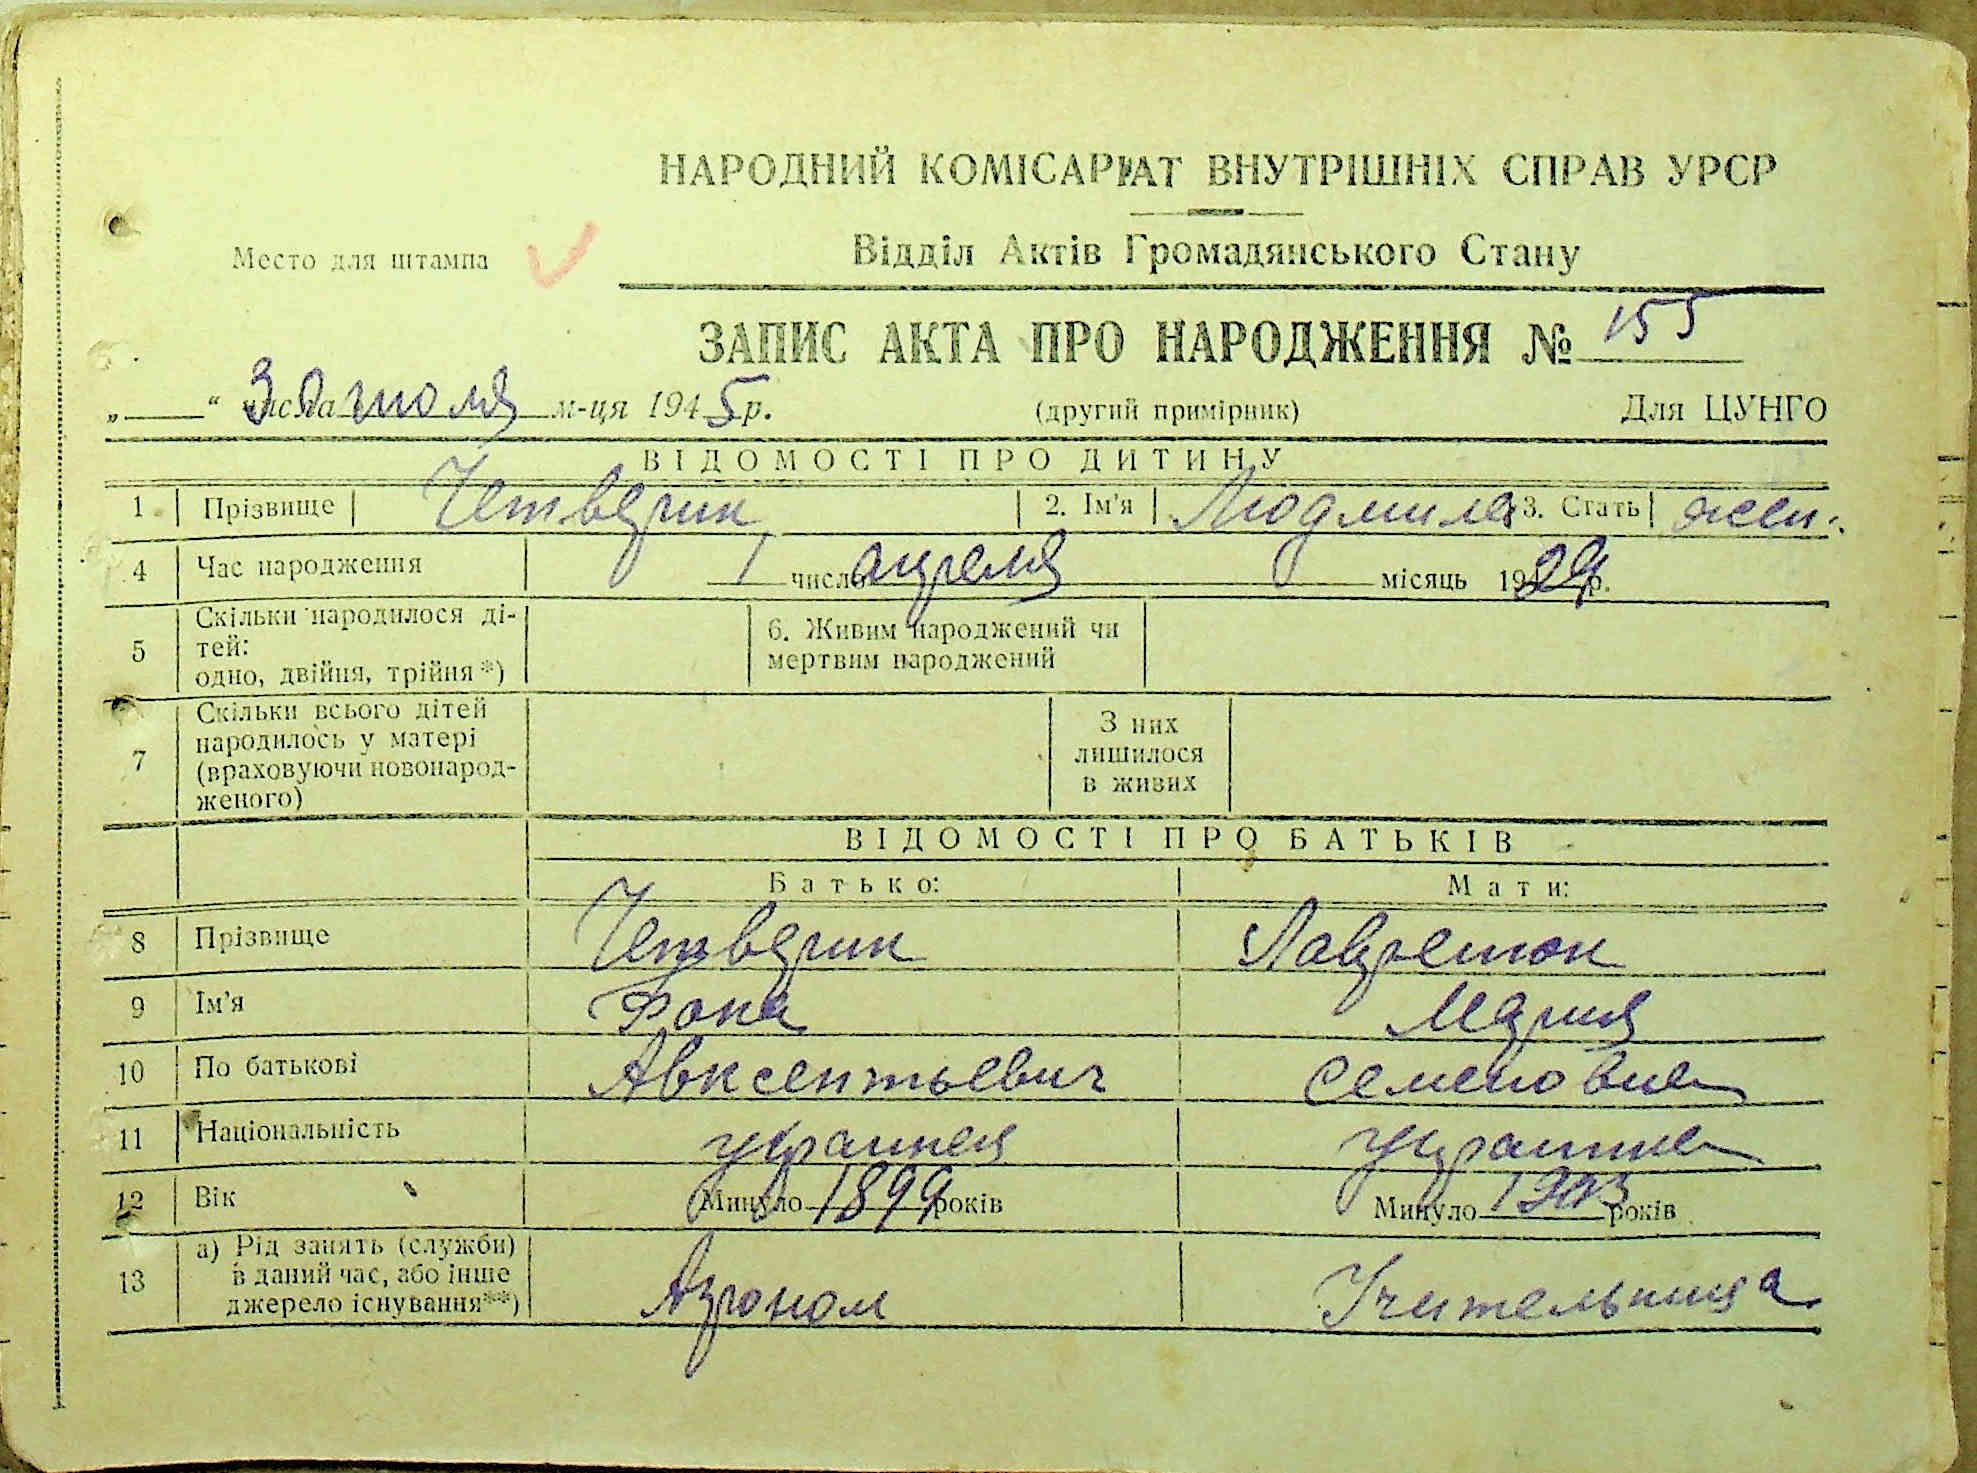 НАРОДНИЙ КОМІСАРІАТ ВНУТРІШНІХ СПРАВ УРСР
Место для штампа
Відділ Актів Громадянського Стану
ЗАПИС АКТА ПРО НАРОДЖЕННЯ № 155
„ “ 30 числа июля м-ця 1945 р. (другий примірник) Для ЦУНГО
ВІДОМОСТІ ПРО ДИТИНУ
1 Прізвище Четверик 2. Ім'я Людмила 3. Стать жен.
4 Час народження 1 число апреля місяць 1929 р.
5 Скільки народилося ді-
тей:
одно, двійня, трійня*)
6. Живим народжений чи
мертвим народжений
7 Скільки всього дітей
народилось у матері
(враховуючи новонарод-
женого)
З них
лишилося
в живих
ВІДОМОСТІ ПРО БАТЬКІВ
Батько: Мати:
8 Прізвище Четверик
9 Ім'я Фока Мария
10 По батькові Авксентьевич Семеновна
11 Національність украинец украинка
12 Вік Минуло 1899 років Минуло 1903 років
13 а) Рід занять (служби)
в даний час, або інше
джерело існування**)
Агроном Учительница